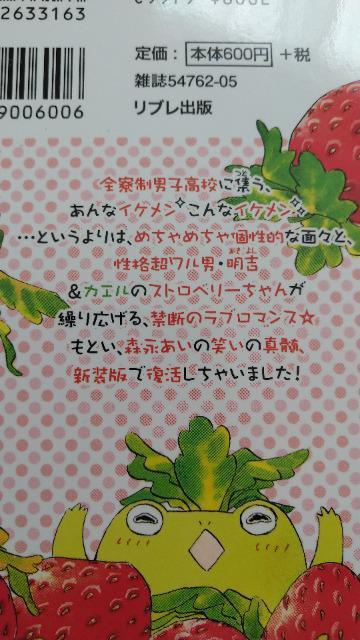 2633163
9006006
定価：本体600円＋税
雑誌54762-05
リブレ出版
全寮制男子高校に集う、
つど
あんなイケメン こんなイケメン
…というよりは、めちゃめちゃ個性的な面々と、
性格超ワル男・明吉
&カエルのストロベリーちゃんが
繰り広げる、禁断のラブロマンス☆
もとい、森永あいの笑いの真髄、
新装版で復活しちゃいました！